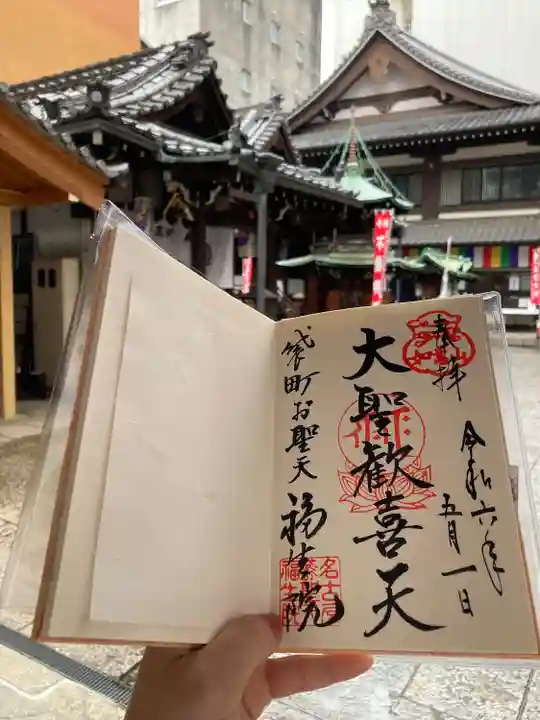 奉拝
令和六年
五月一日
大聖歓喜天
袋町お聖天
福生院
名古屋